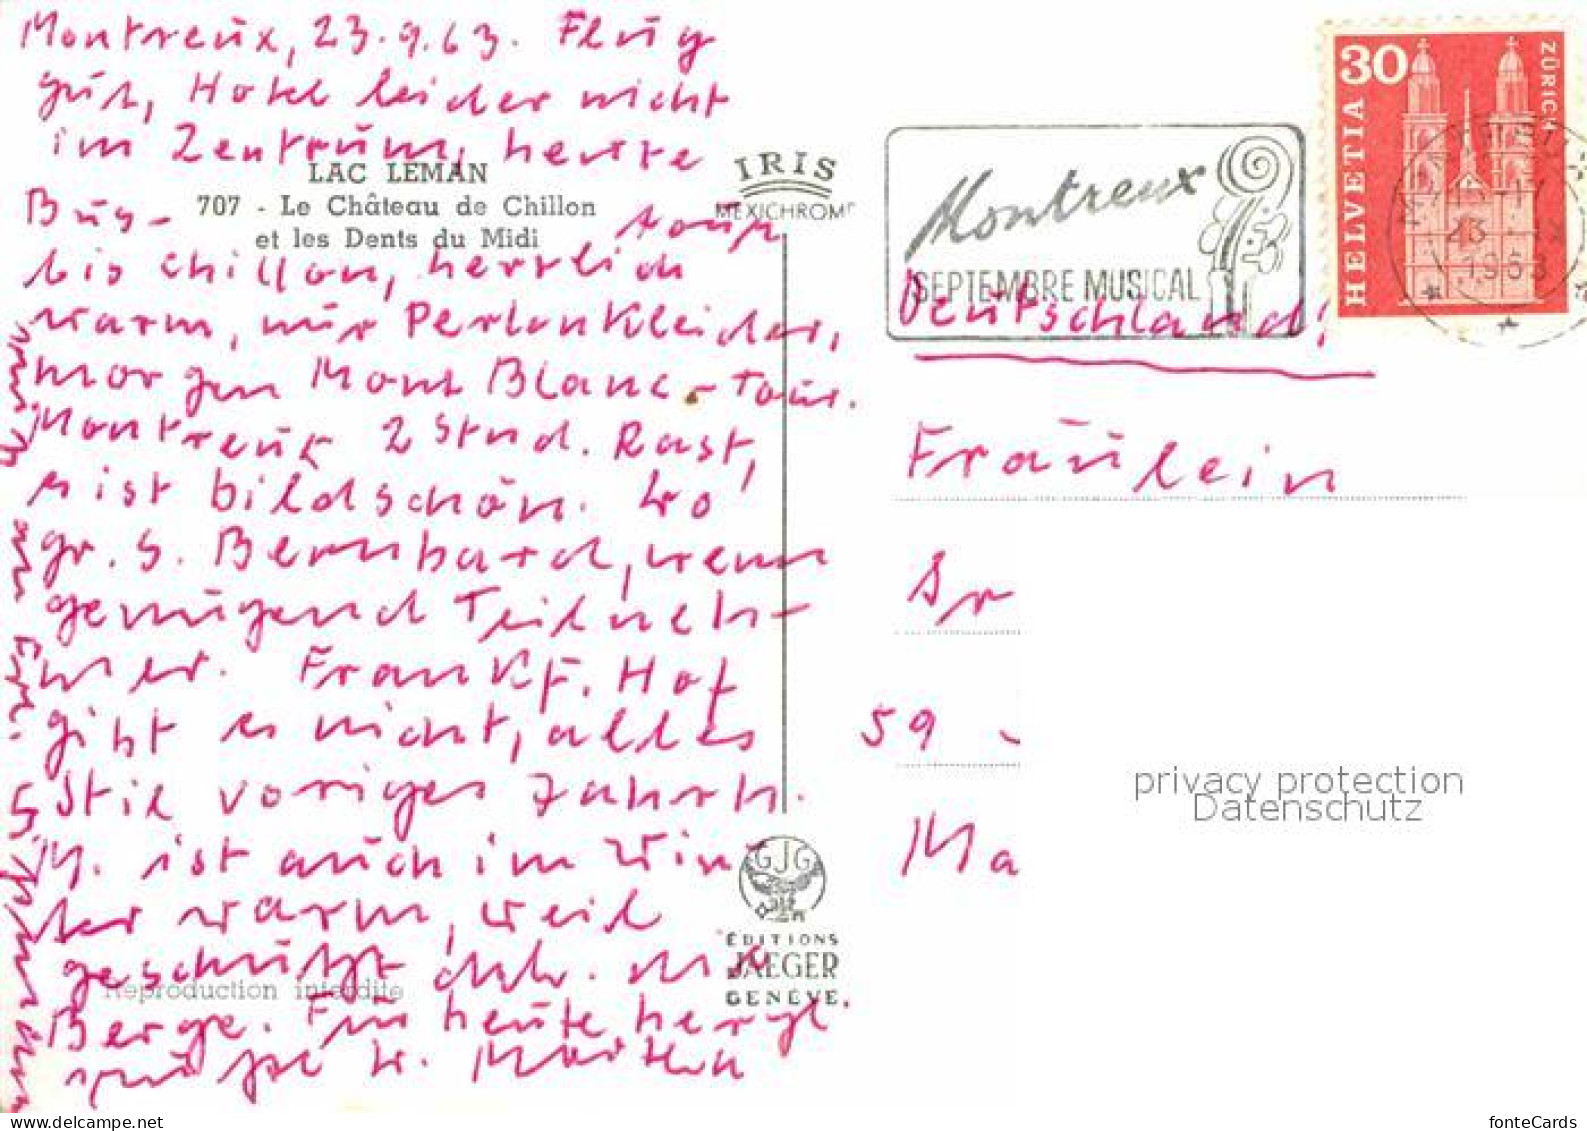 Montreux, 23.9.63. Flug
gut, Hotel leider nicht
im Zentrum, heute
LAC LEMAN
707 - Le Château de Chillon
et les Dents du Midi
Bus-
tour
bis Chillon, herrlich
warm, nur Perlonkleider,
morgen Mont Blanc-Tour.
Montreux 2 Stund. Rast,
es ist bildschön. Wo
gr. S. Bernhard, wenn
genügend Teilneh-
mer. Frankf. Hof
gibt es nicht, alles
Stil voriges Jahrh.
M. ist auch im Win
ter warm, weil
geschützt dch. die
Berge. Für heute herzl
Martha
Reproduction interdite
IRIS
MEXICHROME
GJG
ÉDITIONS
JAEGER
GENÈVE.
Montreux
SEPTEMBRE MUSICAL
30
HELVETIA
ZÜRICH
23
1963
Deutschland!
Fräulein
59 -
Ma
privacy protection
Datenschutz
fonteCards